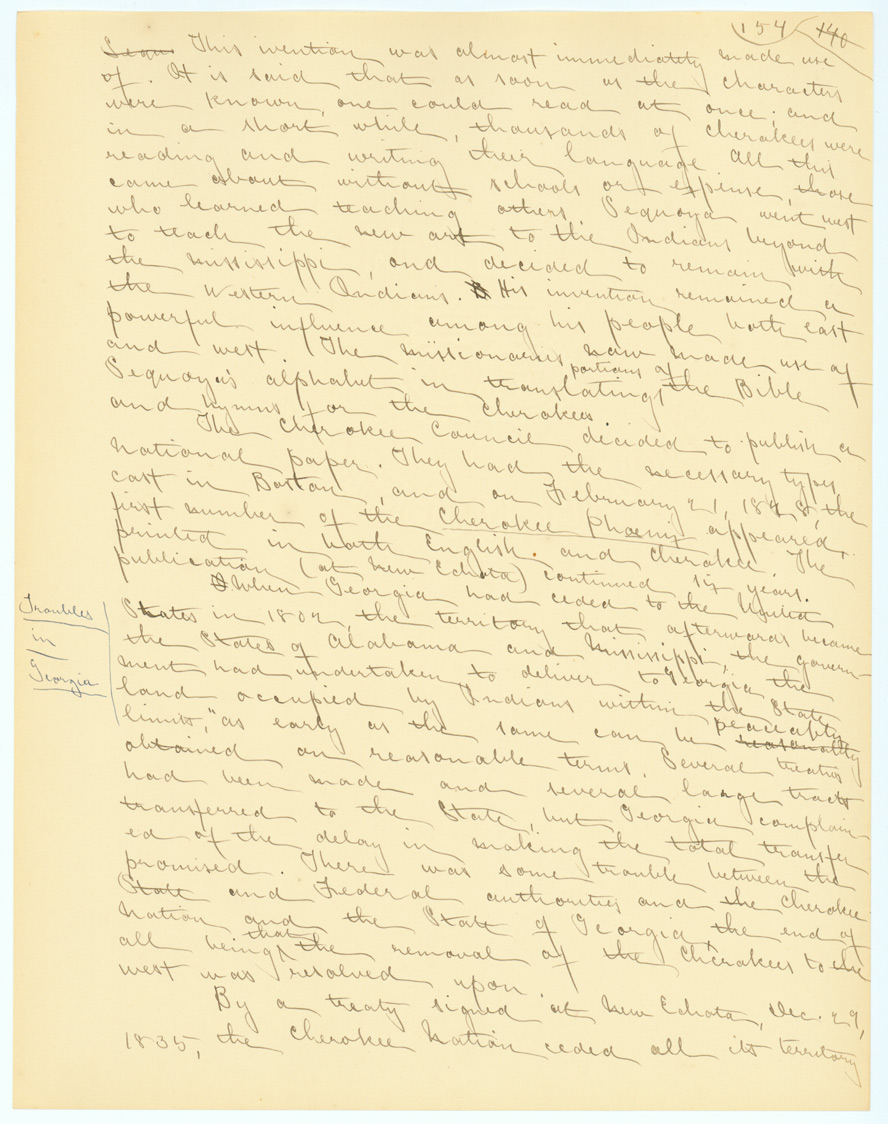 154 140
Sequo This invention was almost immediately made use
of. It is said that as soon as the characters
were known, one could read at once; and
in a short while, thousands of Cherokees were
reading and writing their language. All this
came about without schools or expense, those
who learned teaching others. Sequoya went west
to teach the new art to the Indians beyond
the Mississippi, and decided to remain with
the Western Indians. His invention remained a
powerful influence among his people both east
and west. The missionaries now made use of
portions of
Sequoya's alphabet in translating the Bible
and hymns for the Cherokees.
The Cherokee Council decided to publish a
national paper. They had the necessary types
cast in Boston, and on February 21, 1828, the
first number of the Cherokee Phoenix appeared,
printed in both English and Cherokee. The
publication (at New Echota) continued six years.
When Georgia had ceded to the United
Troubles
in
Georgia
States in 1802, the territory that afterwards became
the States of Alabama and Mississippi, the govern-
ment had undertaken to deliver to Georgia the
land occupied by Indians within the State
limits, "as early as the same can be peaceably
reasonably
obtained on reasonable terms. Several treaties
had been made and several large tracts
transferred to the State, but Georgia complain-
ed of the delay in making the total transfer
promised. There was some trouble between the
State and Federal authorities and the Cherokee
Nation and the State of Georgia the end of
that
all being the removal of the Cherokees to the
west was resolved upon.
By a treaty signed at New Echota, Dec. 29,
1835, the Cherokee Nation ceded all its territory